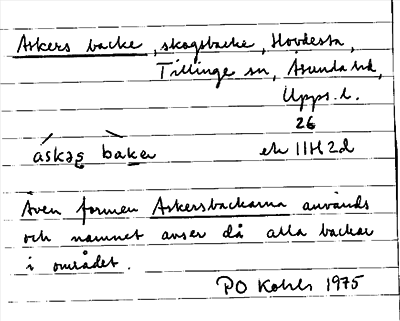 Askers backe, skogsbacke, Hovdesta,
Tillinge sn, Åsunda hd,
Upps. l.
26
áskəs bàkə
ek 11H 2d
Även formen Askersbackarna används
och namnet avser då alla backar
i området.
PO Kohls 1975